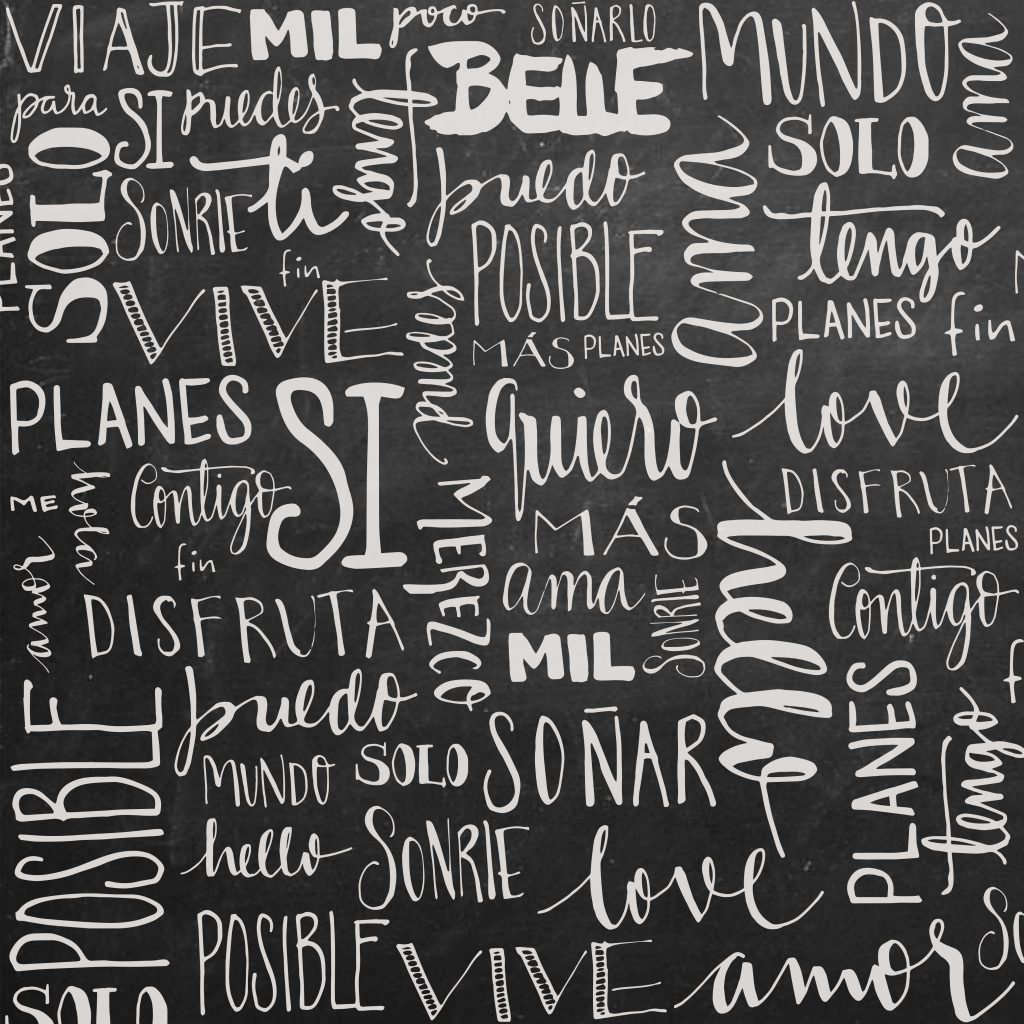 VIAJE MIL poco SOÑARLO MUNDO ama
para SI puedes tengo BELLE
PLANES SOLO SONRIE ti puedo ama SOLO
tengo
fin POSIBLE PLANES fin
VIVE puedes MÁS PLANES
PLANES SI quiero love
ME hola Contigo MEREZCO MÁS DISFRUTA
PLANES
amor fin ama SONRIE hello Contigo
DISFRUTA MIL
POSIBLE puedo SOÑAR PLANES tengo
MUNDO SOLO
hello SONRIE love
POSIBLE VIVE amor
SOLO